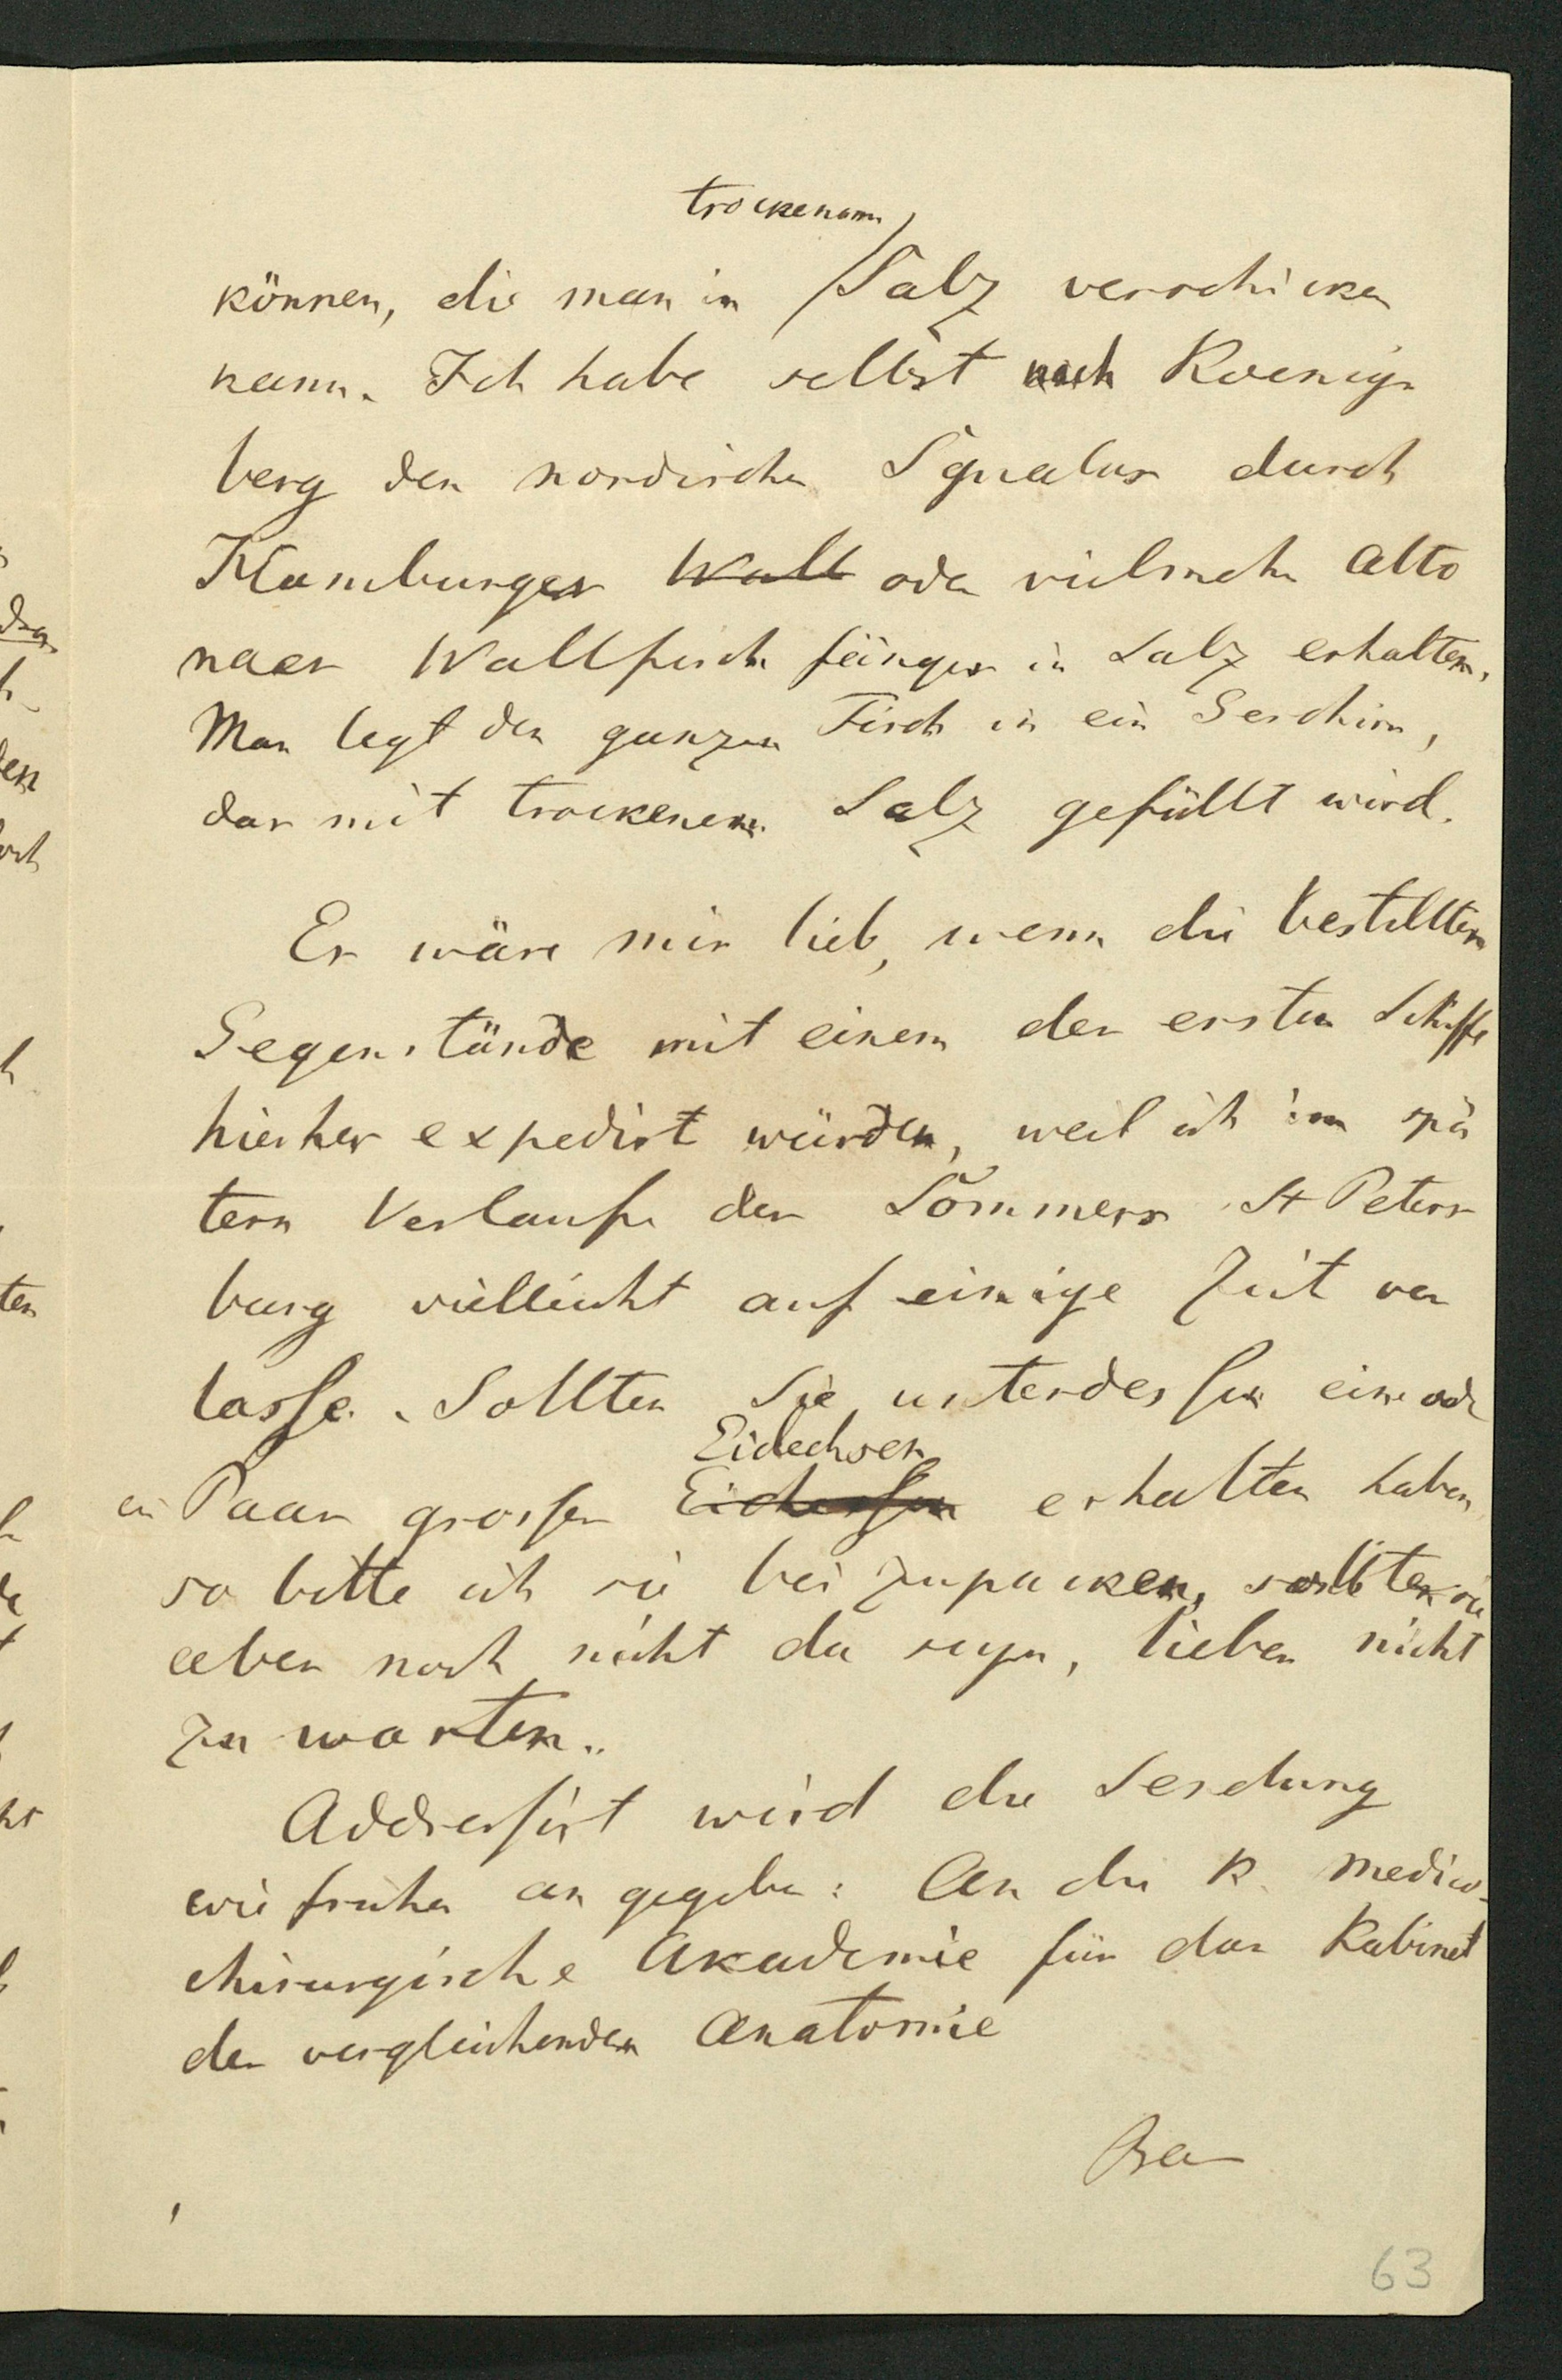 trockenem
können, die man in Salz verschicken
kann. Ich habe selbst nach Koenigs
berg den nordischen Squalus durch
Hamburger Wall oder vielmehr Alto
naer Wallfisch fänger in Salz erhalten.
Man legt den ganzen Fisch in ein Geschirr,
das mit trockenem Salz gefüllt wird.
Es wäre mir lieb, wenn die bestellten
Gegenstände mit einem der ersten Schiffe
hierher expedirt würden, weil ich im spä
tern Verlaufe des Sommers St Peters
burg vielleicht auf einige Zeit ver
lasse. Sollten Sie unterdessen eine oder
Eidechsen
ein Paar grosse erhalten haben
so bitte ich sie bei zupacken, sollten sie
aber noch nicht da seyn, lieber nicht
zu warten.
Addressirt wird die Sendung
wie früher an gegeben: An die K. medico-
chirurgische Akademie für das Kabinet
der vergleichenden Anatomie
Baer
63